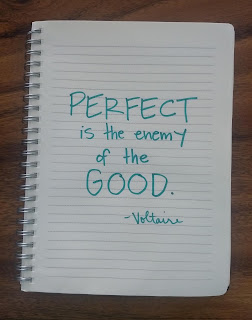 PERFECT
is the enemy
of the
GOOD.
-Voltaire